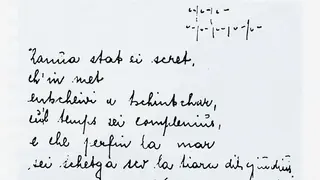 Zanūa stat ei scret,
ch'in met
entscheivi a tschintschar,
cu'l temps sei complenius,
e che perfin la mar
sei schetga sco la tiara dils